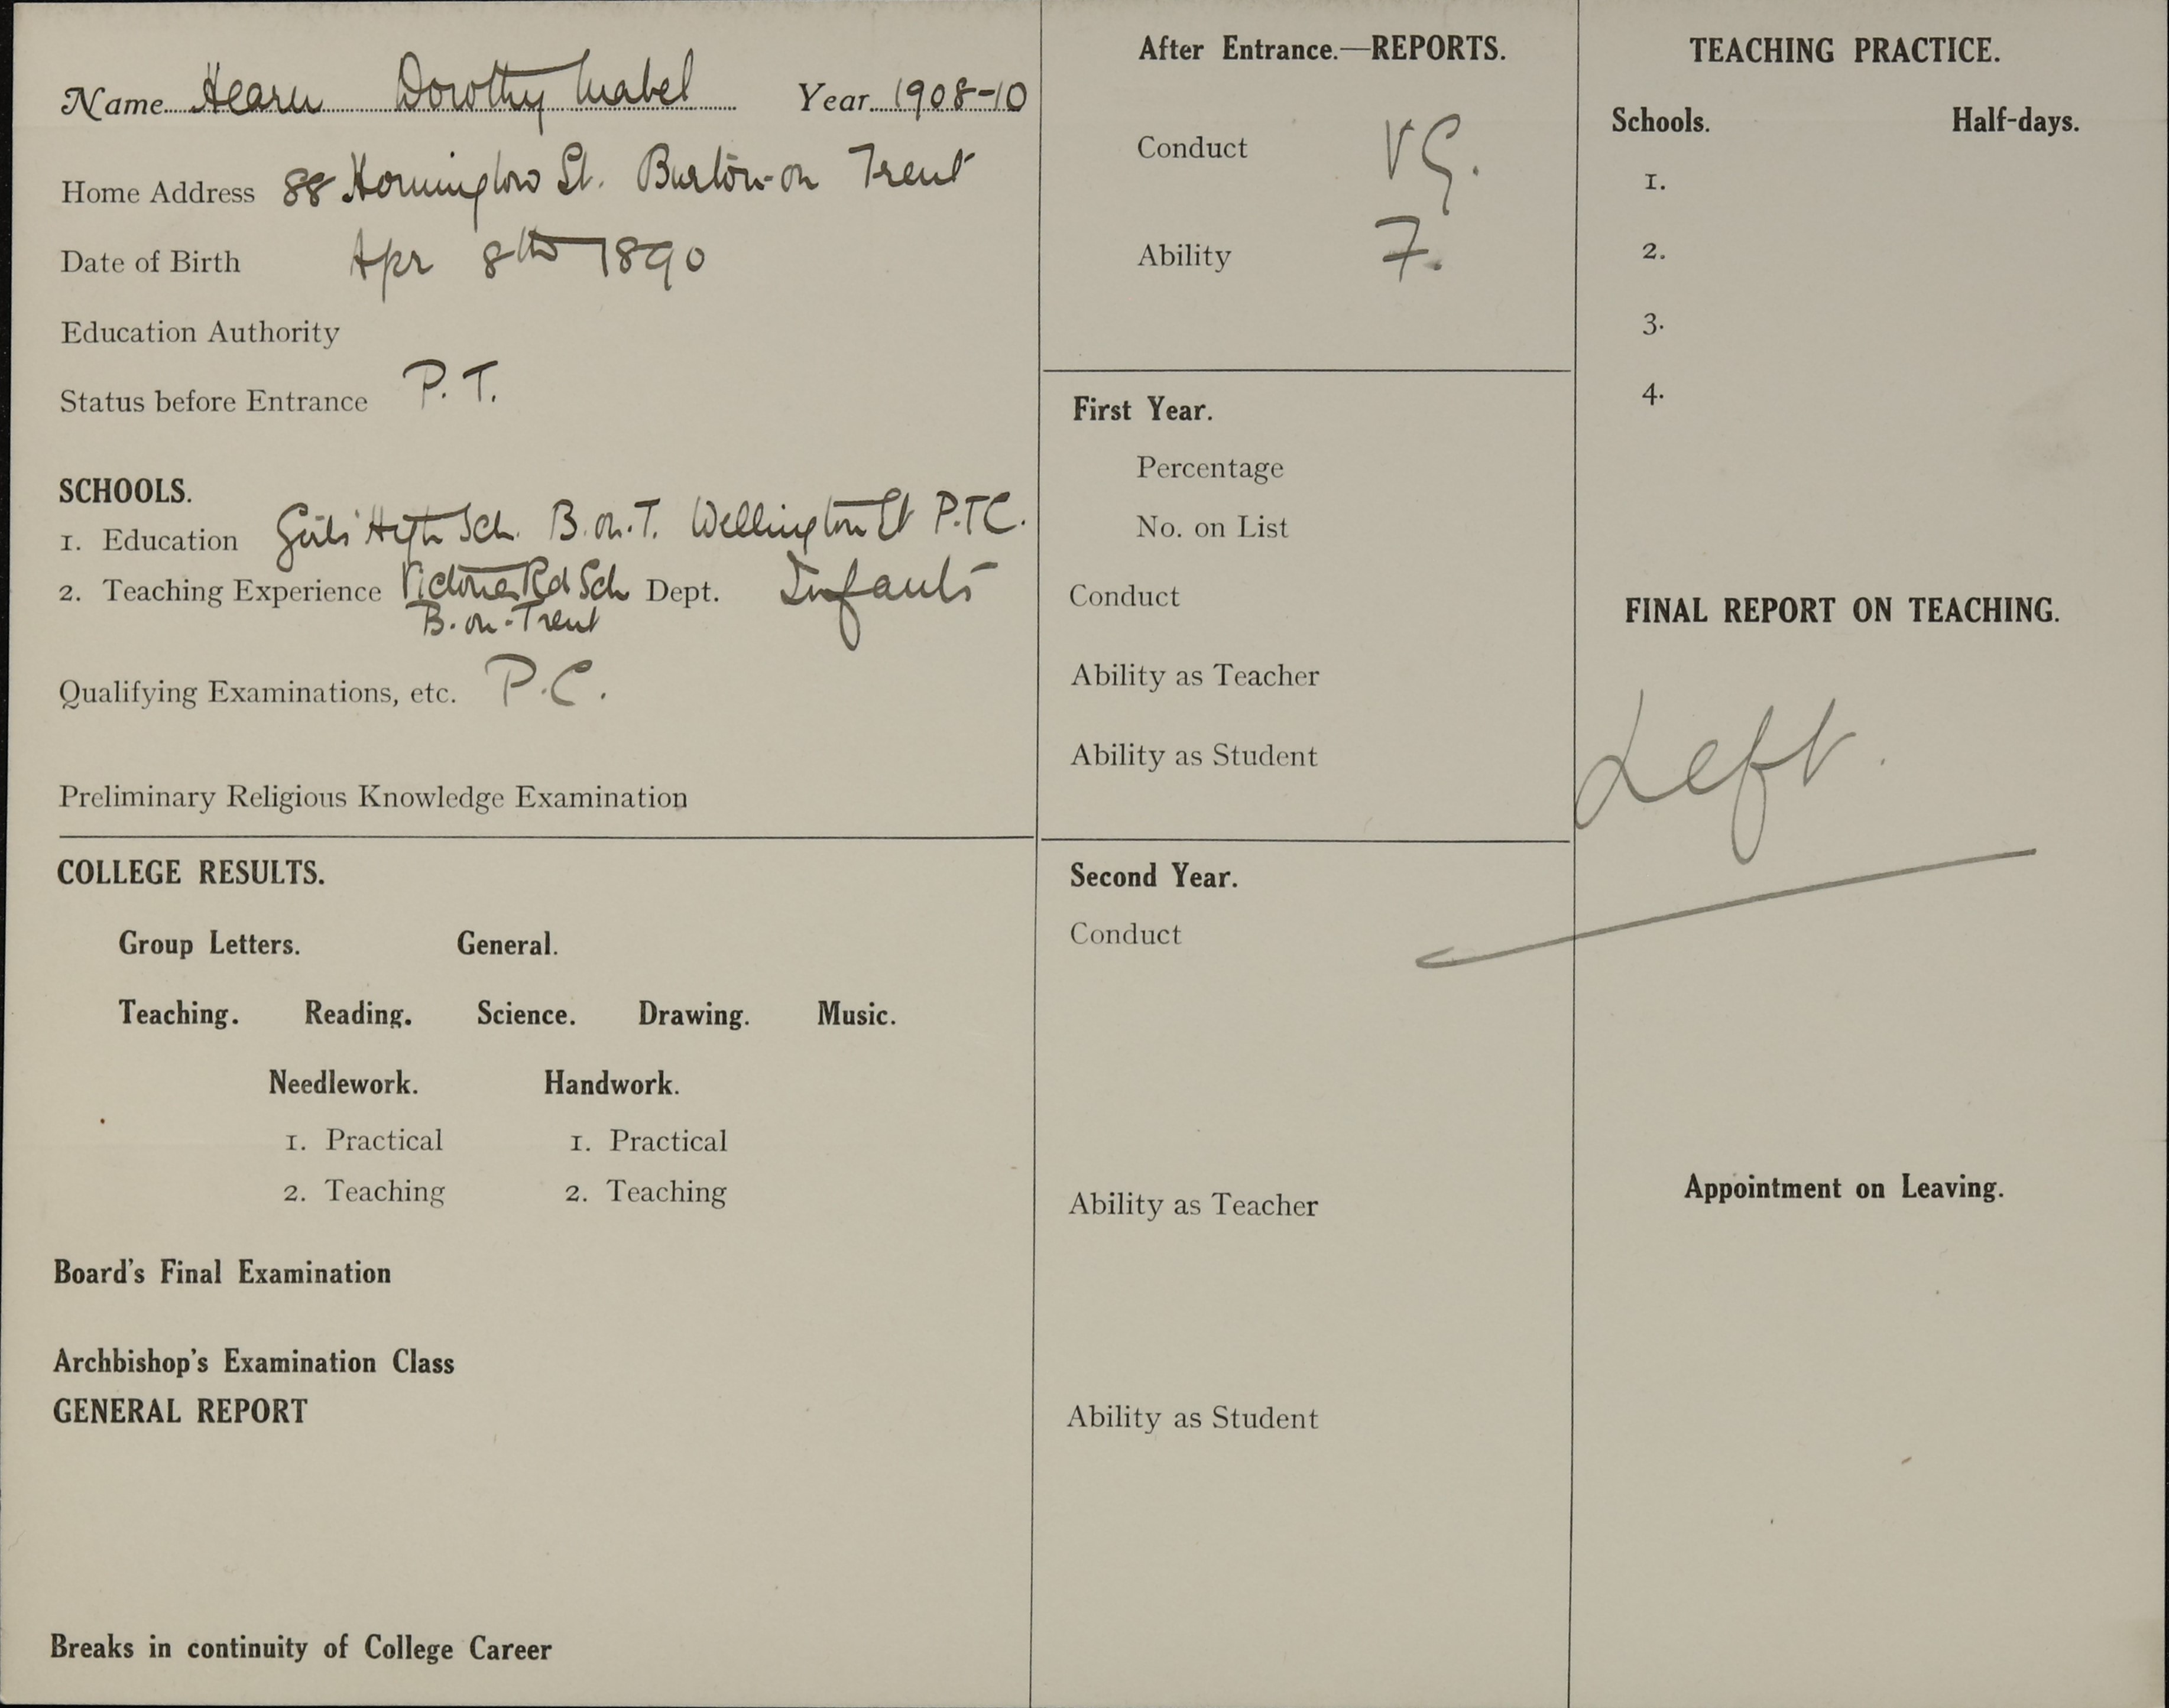 Name Hearn Dorothy Mabel Year 1908-10
Home Address 88 Horninglow St. Burton-on Trent
Date of Birth Apr 8th 1890
Education Authority
Status before Entrance P.T.
SCHOOLS.
1. Education Girls' High Sch. B.on.T. Wellington St P.T.C.
2. Teaching Experience Victoria Rd Sch Dept. Infants
B.on-Trent
Qualifying Examinations, etc. P.C.
Preliminary Religious Knowledge Examination
COLLEGE RESULTS.
Group Letters. General.
Teaching. Reading. Science. Drawing. Music.
Needlework. Handwork.
1. Practical 1. Practical
2. Teaching 2. Teaching
Board's Final Examination
Archbishop's Examination Class
GENERAL REPORT
Breaks in continuity of College Career
After Entrance.—REPORTS.
Conduct VG.
Ability 7.
First Year.
Percentage
No. on List
Conduct
Ability as Teacher
Ability as Student
Second Year.
Conduct
Ability as Teacher
Ability as Student
TEACHING PRACTICE.
Schools. Half-days.
1.
2.
3.
4.
FINAL REPORT ON TEACHING.
Left.
Appointment on Leaving.